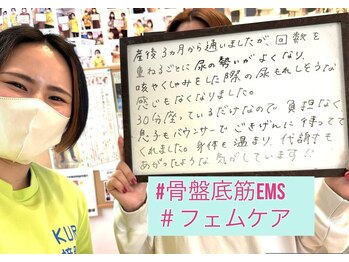 産後3ヵ月から通いましたが、回数を
重ねるごとに尿の勢いがよくなり、
咳やくしゃみをした際の尿もれしそうな
感じもなくなりました。
30分座っているだけなので負担なく
息子もバウンサーでごきげんに待ってて
くれました。身体も温まり、代謝も
あがったような気がしています!!
#骨盤底筋EMS
#フェムケア
KUR